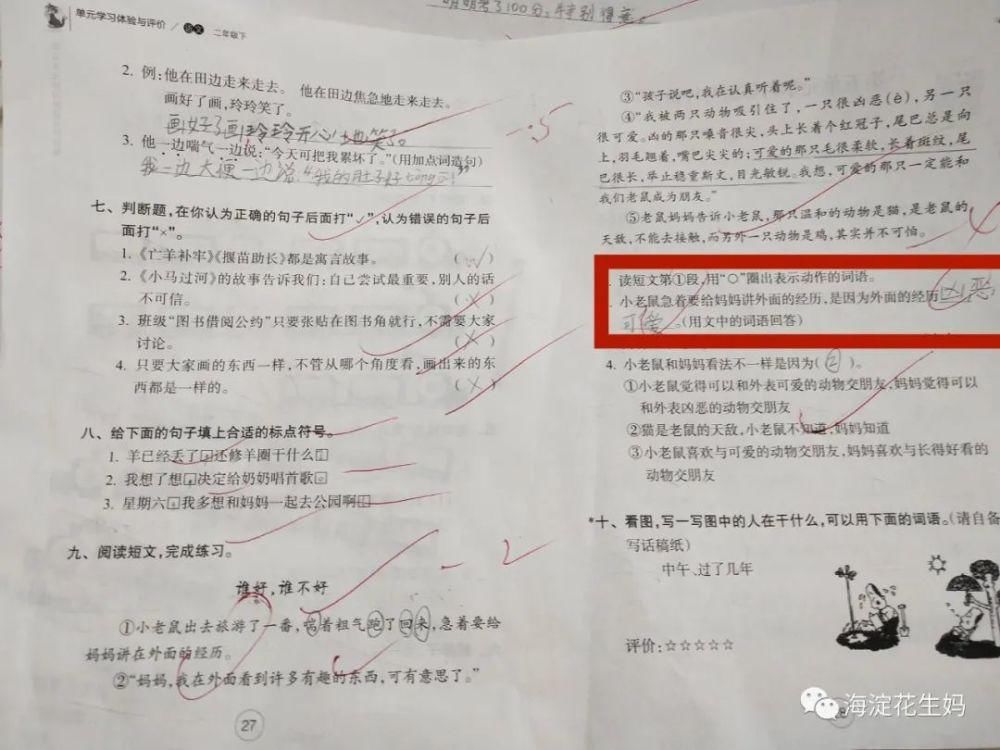 明明考了100分,特别得意。
单元学习体验与评价 / 语文 二年级下
2. 例:他在田边走来走去。 他在田边焦急地走来走去。
画好了画,玲玲笑了。
画好了画,玲玲开心地笑了。
3. 他一边喘气一边说:“今天可把我累坏了。”(用加点词造句)
我一边大便一边说:“我的肚子好tong
七、判断题,在你认为正确的句子后面打“✓”,认为错误的句子后
面打“×”。
1.《亡羊补牢》《揠苗助长》都是寓言故事。 (✓)
2.《小马过河》的故事告诉我们:自己尝试最重要,别人的话
不可信。 (×)
3. 班级“图书借阅公约”只要张贴在图书角就行,不需要大家
讨论。 (×)
4. 只要大家画的东西一样,不管从哪个角度看,画出来的东
西都是一样的。 (×)
八、给下面的句子填上合适的标点符号。
1. 羊已经丢了□还修羊圈干什么□
2. 我想了想□决定给奶奶唱首歌□
3. 星期六□我多想和妈妈一起去公园啊□
九、阅读短文,完成练习。
-2
谁好,谁不好
①小老鼠出去旅游了一番,喘着粗气跑了回来,急着要给
妈妈讲在外面的经历。
②“妈妈,我在外面看到许多有趣的东西,可有意思了。”
27
③“孩子说吧,我在认真听着呢。”
④“我被两只动物吸引住了,一只很凶恶(è),另一只
很可爱。凶的那只嗓音很尖,头上长着个红冠子,尾巴总是向
上,羽毛翘着,嘴巴尖尖的;可爱的那只毛很柔软,长着斑纹,尾
巴很长,举止稳重斯文,目光敏锐。我想,可爱的那只一定能和
我们老鼠成为朋友。”
⑤老鼠妈妈告诉小老鼠,那只温和的动物是猫,是老鼠的
天敌,不能去接触,而另外一只动物是鸡,其实并不可怕。
读短文第①段,用“○”圈出表示动作的词语。
小老鼠急着要给妈妈讲外面的经历,是因为外面的经历凶恶
可爱。(用文中的词语回答)
4. 小老鼠和妈妈看法不一样是因为(②)。
①小老鼠觉得可以和外表可爱的动物交朋友,妈妈觉得可以
和外表凶恶的动物交朋友
②猫是老鼠的天敌,小老鼠不知道,妈妈知道
③小老鼠喜欢与可爱的动物交朋友,妈妈喜欢与长得好看的
动物交朋友
*十、看图,写一写图中的人在干什么,可以用下面的词语。(请自备
写话稿纸)
中午、过了几年
评价:☆☆☆☆☆
海淀花生妈